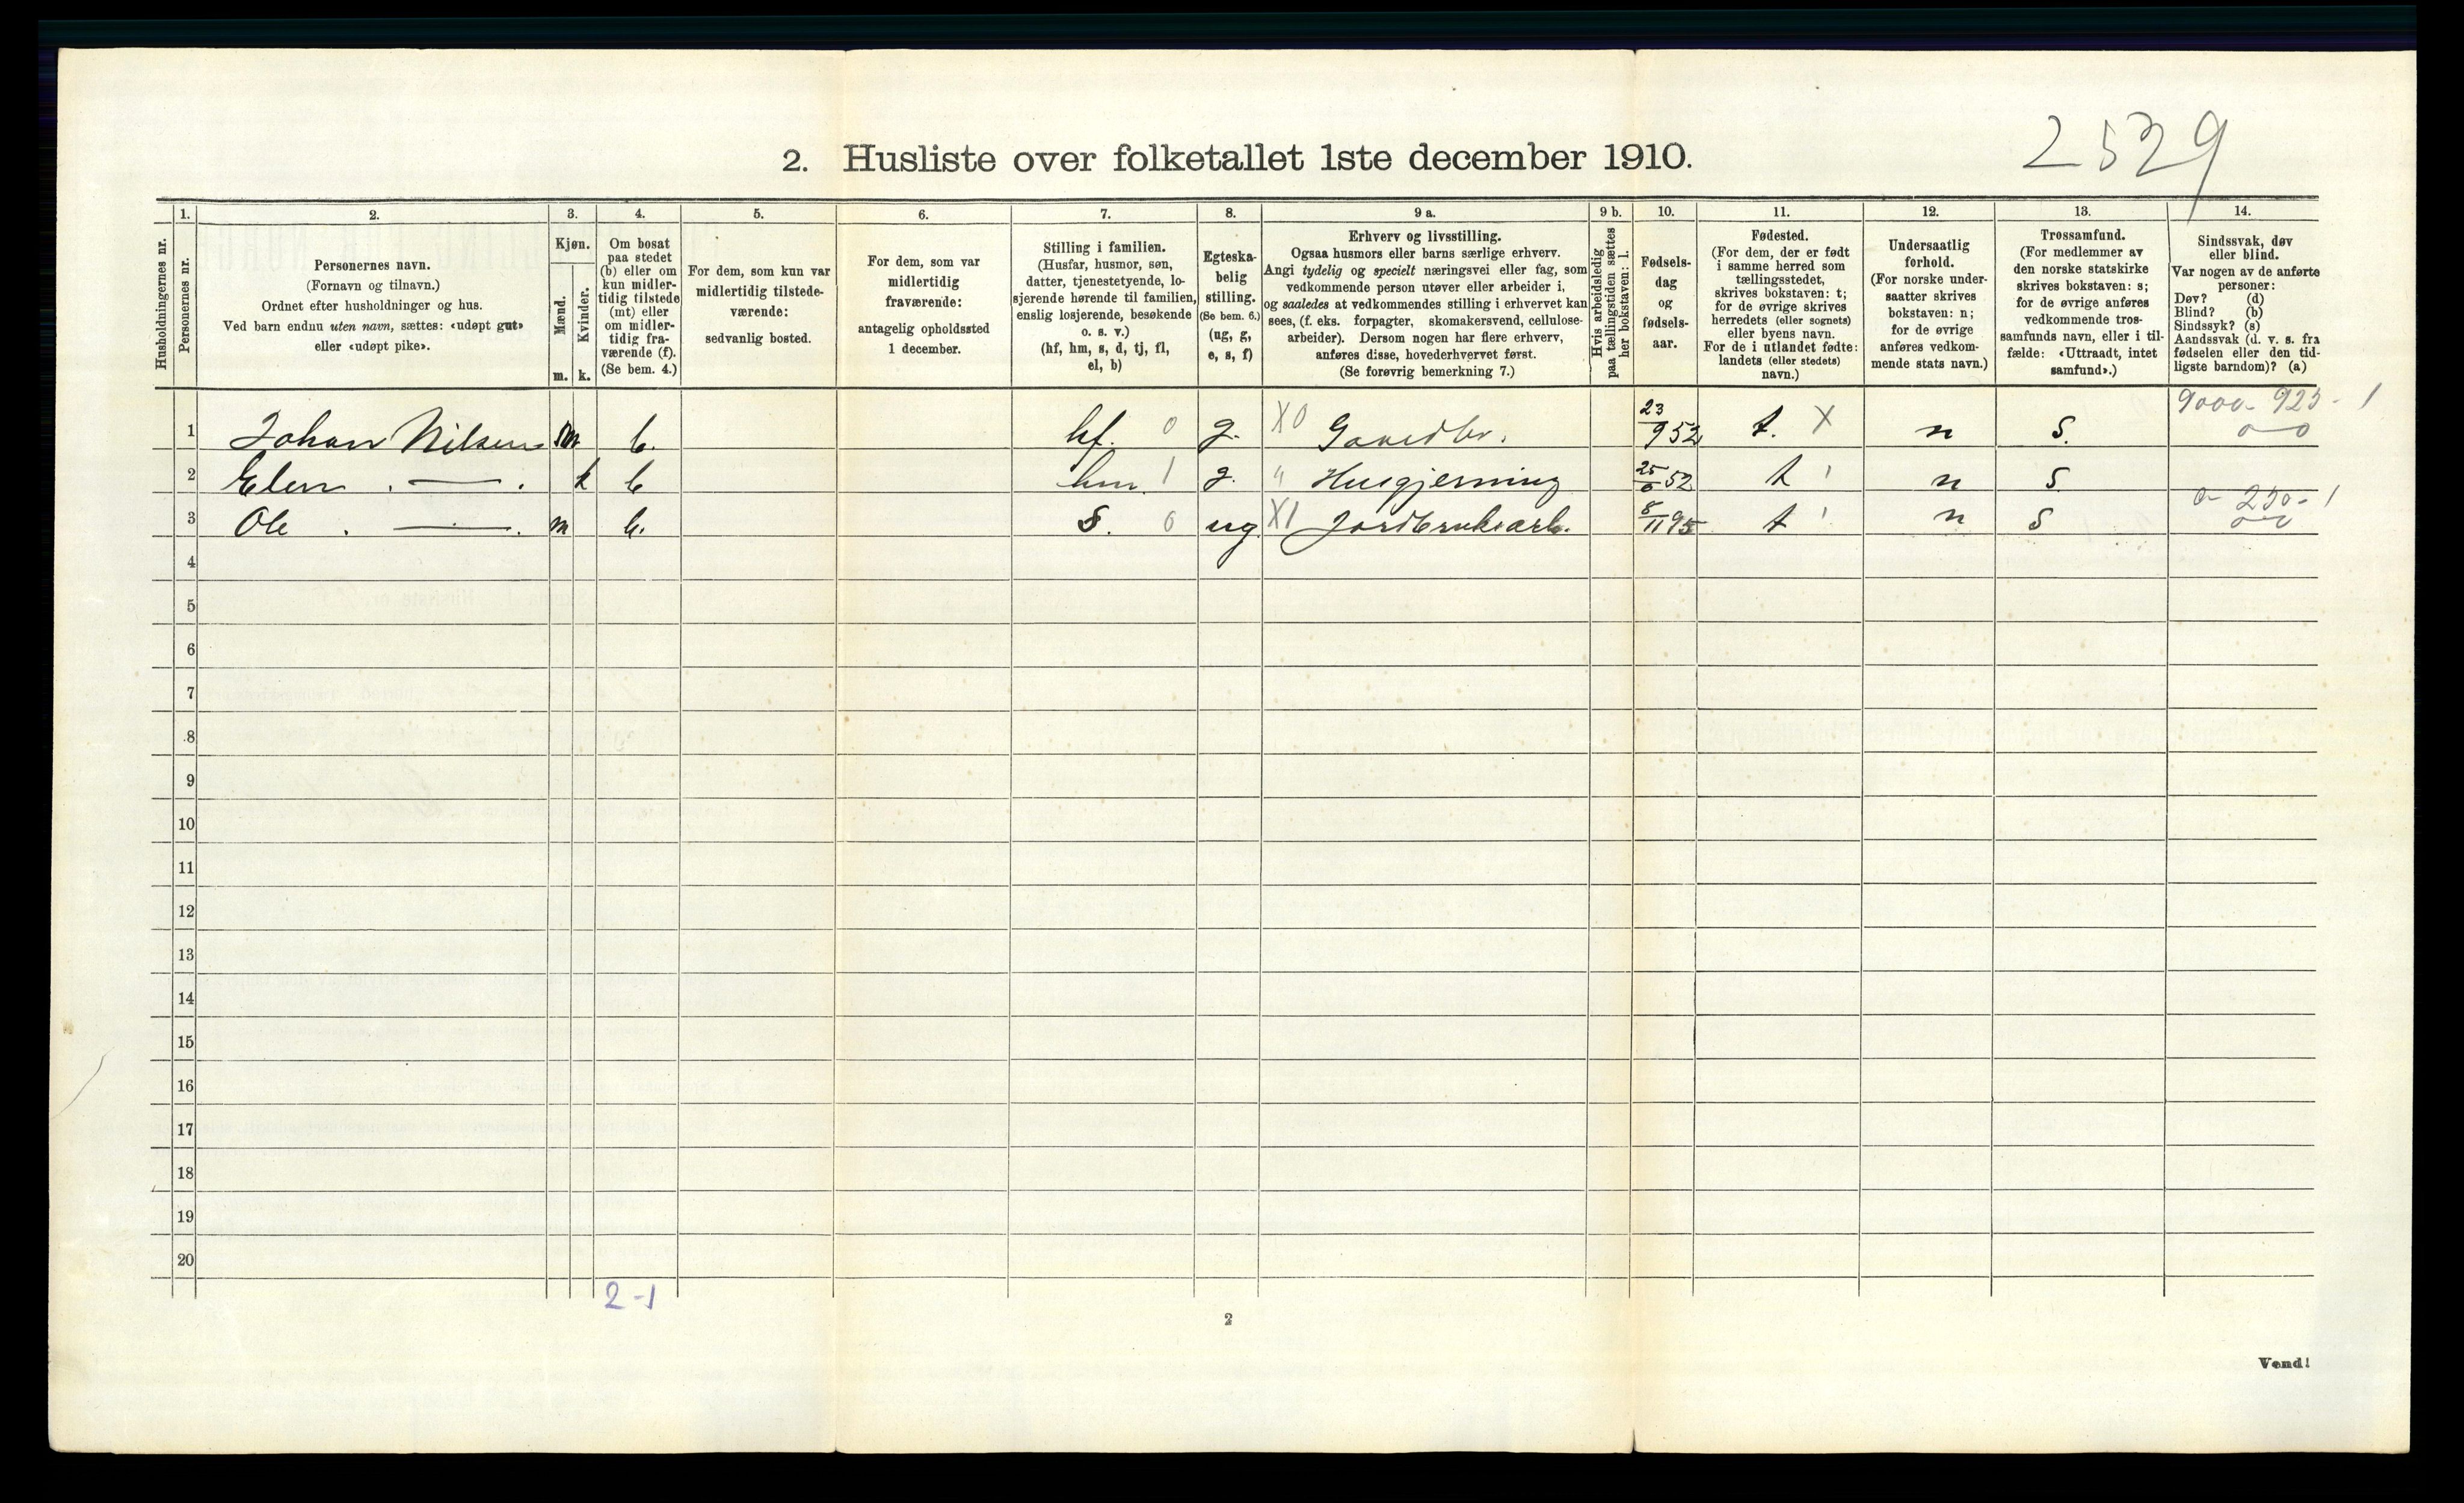 2529
2. Husliste over folketallet 1ste december 1910.
Husholdningernes nr.
1.
Personernes nr.
2.
Personernes navn.
(Fornavn og tilnavn.)
Ordnet efter husholdninger og hus.
Ved barn endnu uten navn, sættes: «udøpt gut»
eller «udøpt pike».
3.
Kjøn.
Mænd.
Kvinder.
m. k.
4.
Om bosat
paa stedet
(b) eller om
kun midler-
tidig tilstede
(mt) eller
om midler-
tidig fra-
værende (f).
(Se bem. 4.)
5.
For dem, som kun var
midlertidig tilstede-
værende:
sedvanlig bosted.
6.
For dem, som var
midlertidig
fraværende:
antagelig opholdssted
1 december.
7.
Stilling i familien.
(Husfar, husmor, søn,
datter, tjenestetyende, lo-
sjerende hørende til familien,
enslig losjerende, besøkende
o. s. v.)
(hf, hm, s, d, tj, fl,
el, b)
8.
Egteska-
belig
stilling.
(Se bem. 6.)
(ug, g,
e, s, f)
9 a.
Erhverv og livsstilling.
Ogsaa husmors eller barns særlige erhverv.
Angi tydelig og specielt næringsvei eller fag, som
vedkommende person utøver eller arbeider i,
og saaledes at vedkommendes stilling i erhvervet kan
sees, (f. eks. forpagter, skomakersvend, cellulose-
arbeider). Dersom nogen har flere erhverv,
anføres disse, hovederhvervet først.
(Se forøvrig bemerkning 7.)
9 b.
Hvis arbeidsledig
paa tællingstiden sættes
her bokstaven: l.
10.
Fødsels-
dag
og
fødsels-
aar.
11.
Fødested.
(For dem, der er født
i samme herred som
tællingsstedet,
skrives bokstaven: t;
for de øvrige skrives
herredets (eller sognets)
eller byens navn.
For de i utlandet fødte:
landets (eller stedets)
navn.)
12.
Undersaatlig
forhold.
(For norske under-
saatter skrives
bokstaven: n;
for de øvrige
anføres vedkom-
mende stats navn.)
13.
Trossamfund.
(For medlemmer av
den norske statskirke
skrives bokstaven: s;
for de øvrige anføres
vedkommende tros-
samfunds navn, eller i til-
fælde: «Uttraadt, intet
samfund».)
14.
Sindssvak, døv
eller blind.
Var nogen av de anførte
personer:
Døv? (d)
Blind? (b)
Sindssyk? (s)
Aandssvak (d. v. s. fra
fødselen eller den tid-
ligste barndom)? (a)
9000 - 925 - 1
1 Johan Nilsen m b. hf. 0 g. X0 Gaardbr. 23/9 52 t. X n S. 0 — 0
2 Elen . — . k b hm. 1 g. " Husgjerning 25/6 52 t ' n S.
0 - 250 - 1
3 Ole . — . m b. S. 0 ug X1 Jordbruksarb. 8/11 95 t ' n S 0 — 0
4
5
6
7
8
9
10
11
12
13
14
15
16
17
18
19
20
2 - 1
2
Vend!